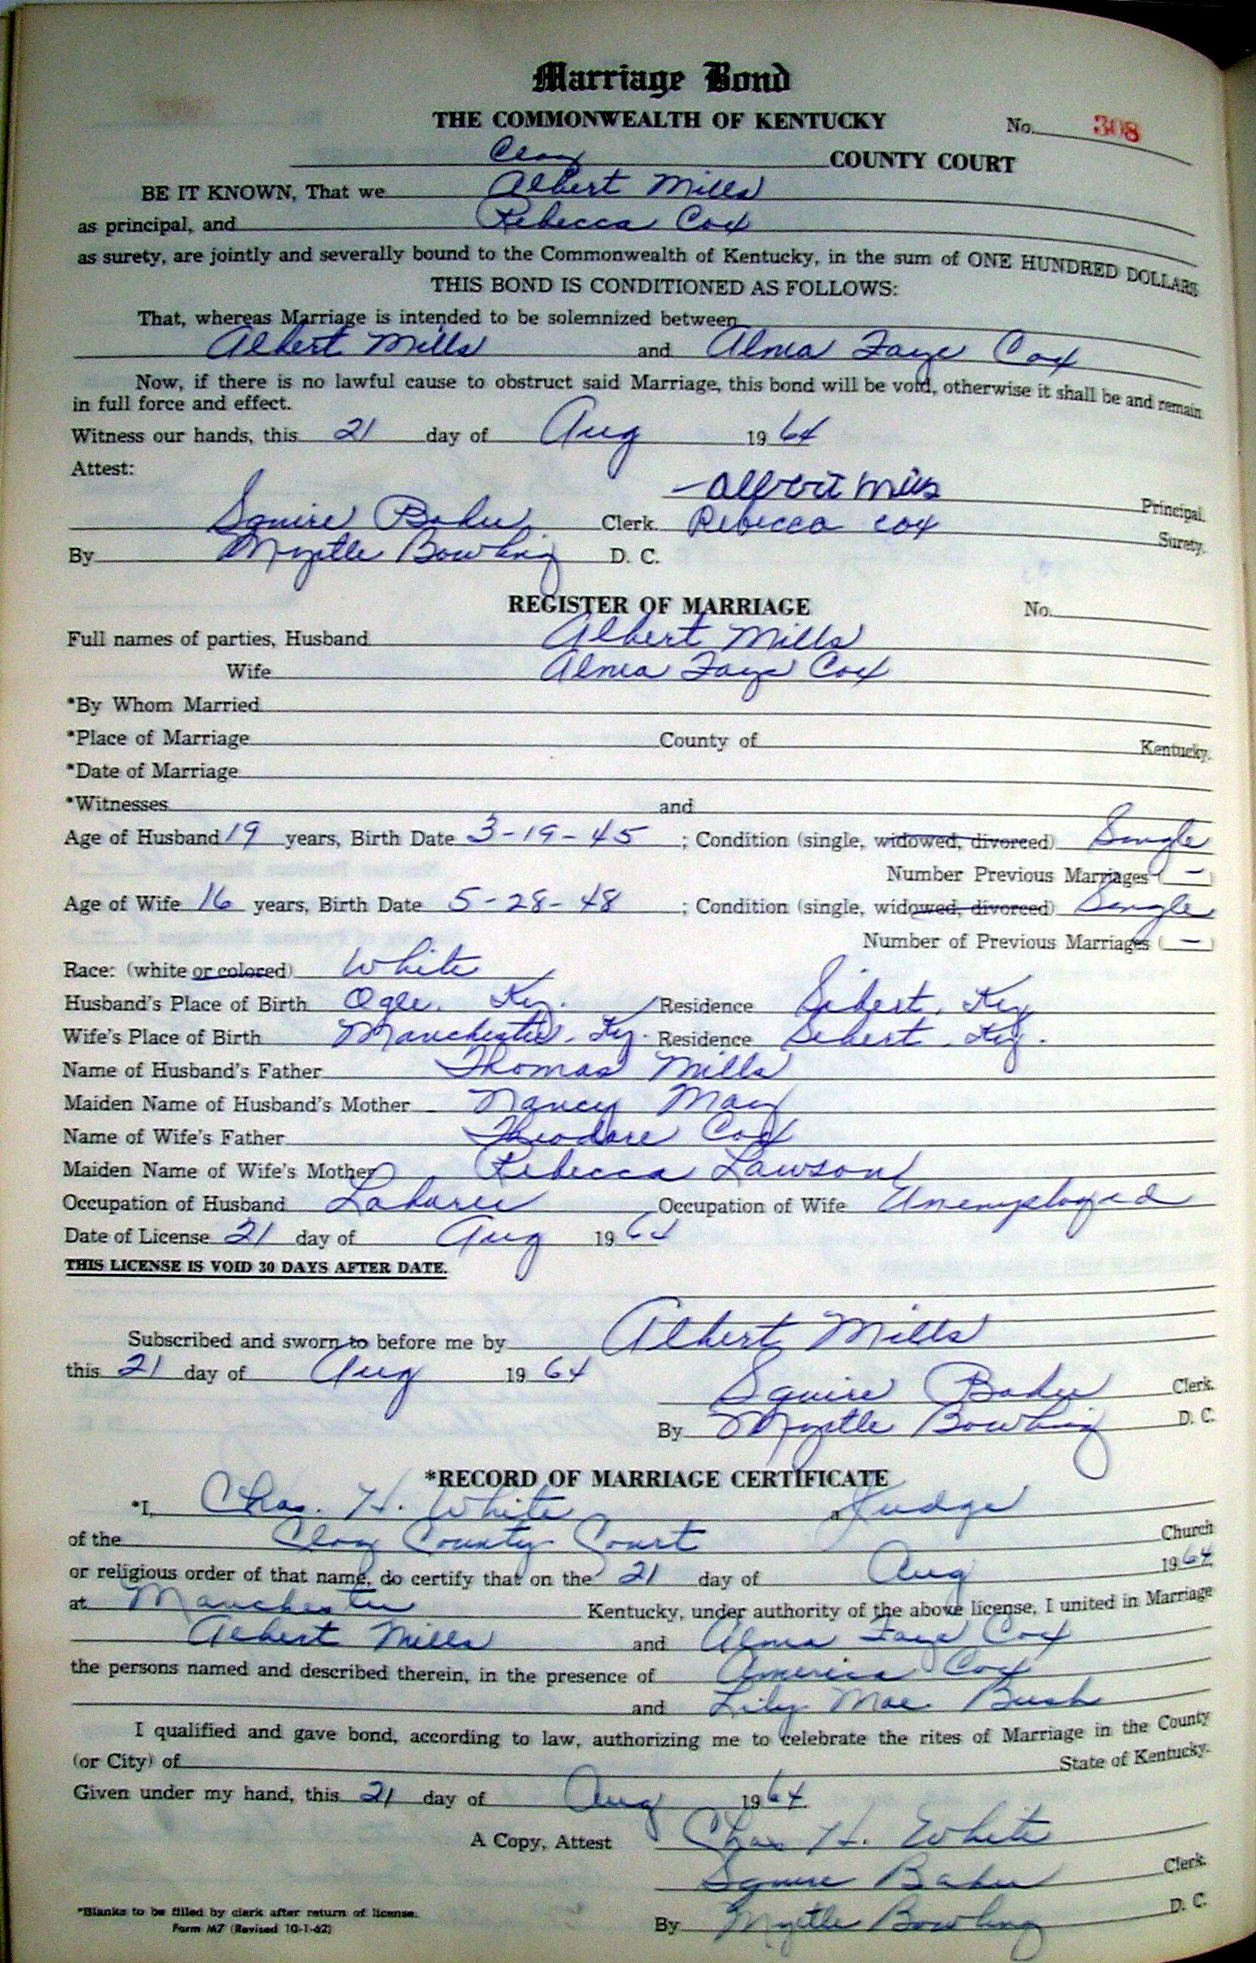 Marriage Bond
THE COMMONWEALTH OF KENTUCKY No. 308
Clay COUNTY COURT
BE IT KNOWN, That we Albert Mills
as principal, and Rebecca Cox
as surety, are jointly and severally bound to the Commonwealth of Kentucky, in the sum of ONE HUNDRED DOLLARS
THIS BOND IS CONDITIONED AS FOLLOWS:
That, whereas Marriage is intended to be solemnized between
Albert Mills and Alma Faye Cox
Now, if there is no lawful cause to obstruct said Marriage, this bond will be void, otherwise it shall be and remain
in full force and effect.
Witness our hands, this 21 day of Aug 1964
Attest:
Albert Mills Principal.
Squire Baker Clerk. Rebecca Cox Surety.
By Myrtle Bowling D. C.
REGISTER OF MARRIAGE No.
Full names of parties, Husband Albert Mills
Wife Alma Faye Cox
*By Whom Married
*Place of Marriage County of Kentucky.
*Date of Marriage
*Witnesses and
Age of Husband 19 years, Birth Date 3-19-45 ; Condition (single, widowed, divorced) Single
Number Previous Marriages ( - )
Age of Wife 16 years, Birth Date 5-28-48 ; Condition (single, widowed, divorced) Single
Number of Previous Marriages ( - )
Race: (white or colored) White
Husband's Place of Birth Ogle, Ky. Residence Sibert, Ky
Wife's Place of Birth Manchester, Ky. Residence Sibert, Ky.
Name of Husband's Father Thomas Mills
Maiden Name of Husband's Mother Nancy May
Name of Wife's Father Theodore Cox
Maiden Name of Wife's Mother Rebecca Lawson
Occupation of Husband Laborer Occupation of Wife Unemployed
Date of License 21 day of Aug 1964
THIS LICENSE IS VOID 30 DAYS AFTER DATE.
Subscribed and sworn to before me by Albert Mills
this 21 day of Aug 1964
Squire Baker Clerk.
By Myrtle Bowling D. C.
*RECORD OF MARRIAGE CERTIFICATE
*I, Chas. H. White a Judge
of the Clay County Court Church
or religious order of that name, do certify that on the 21 day of Aug 1964
at Manchester Kentucky, under authority of the above license, I united in Marriage
Albert Mills and Alma Faye Cox
the persons named and described therein, in the presence of America Cox
and Lily Mae Bush
I qualified and gave bond, according to law, authorizing me to celebrate the rites of Marriage in the County
(or City) of State of Kentucky.
Given under my hand, this 21 day of Aug 1964
A Copy, Attest Chas H. White
Squire Baker Clerk.
By Myrtle Bowling D. C.
*Blanks to be filled by clerk after return of license.
Form M7 (Revised 10-1-62)